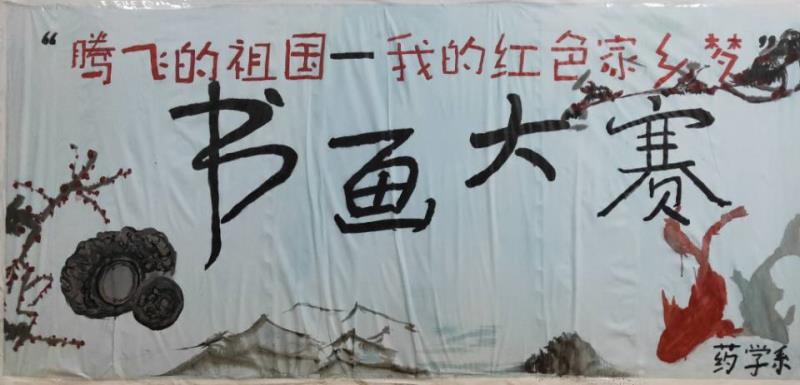 “腾飞的祖国—我的红色家乡梦”
书画大赛
药学系